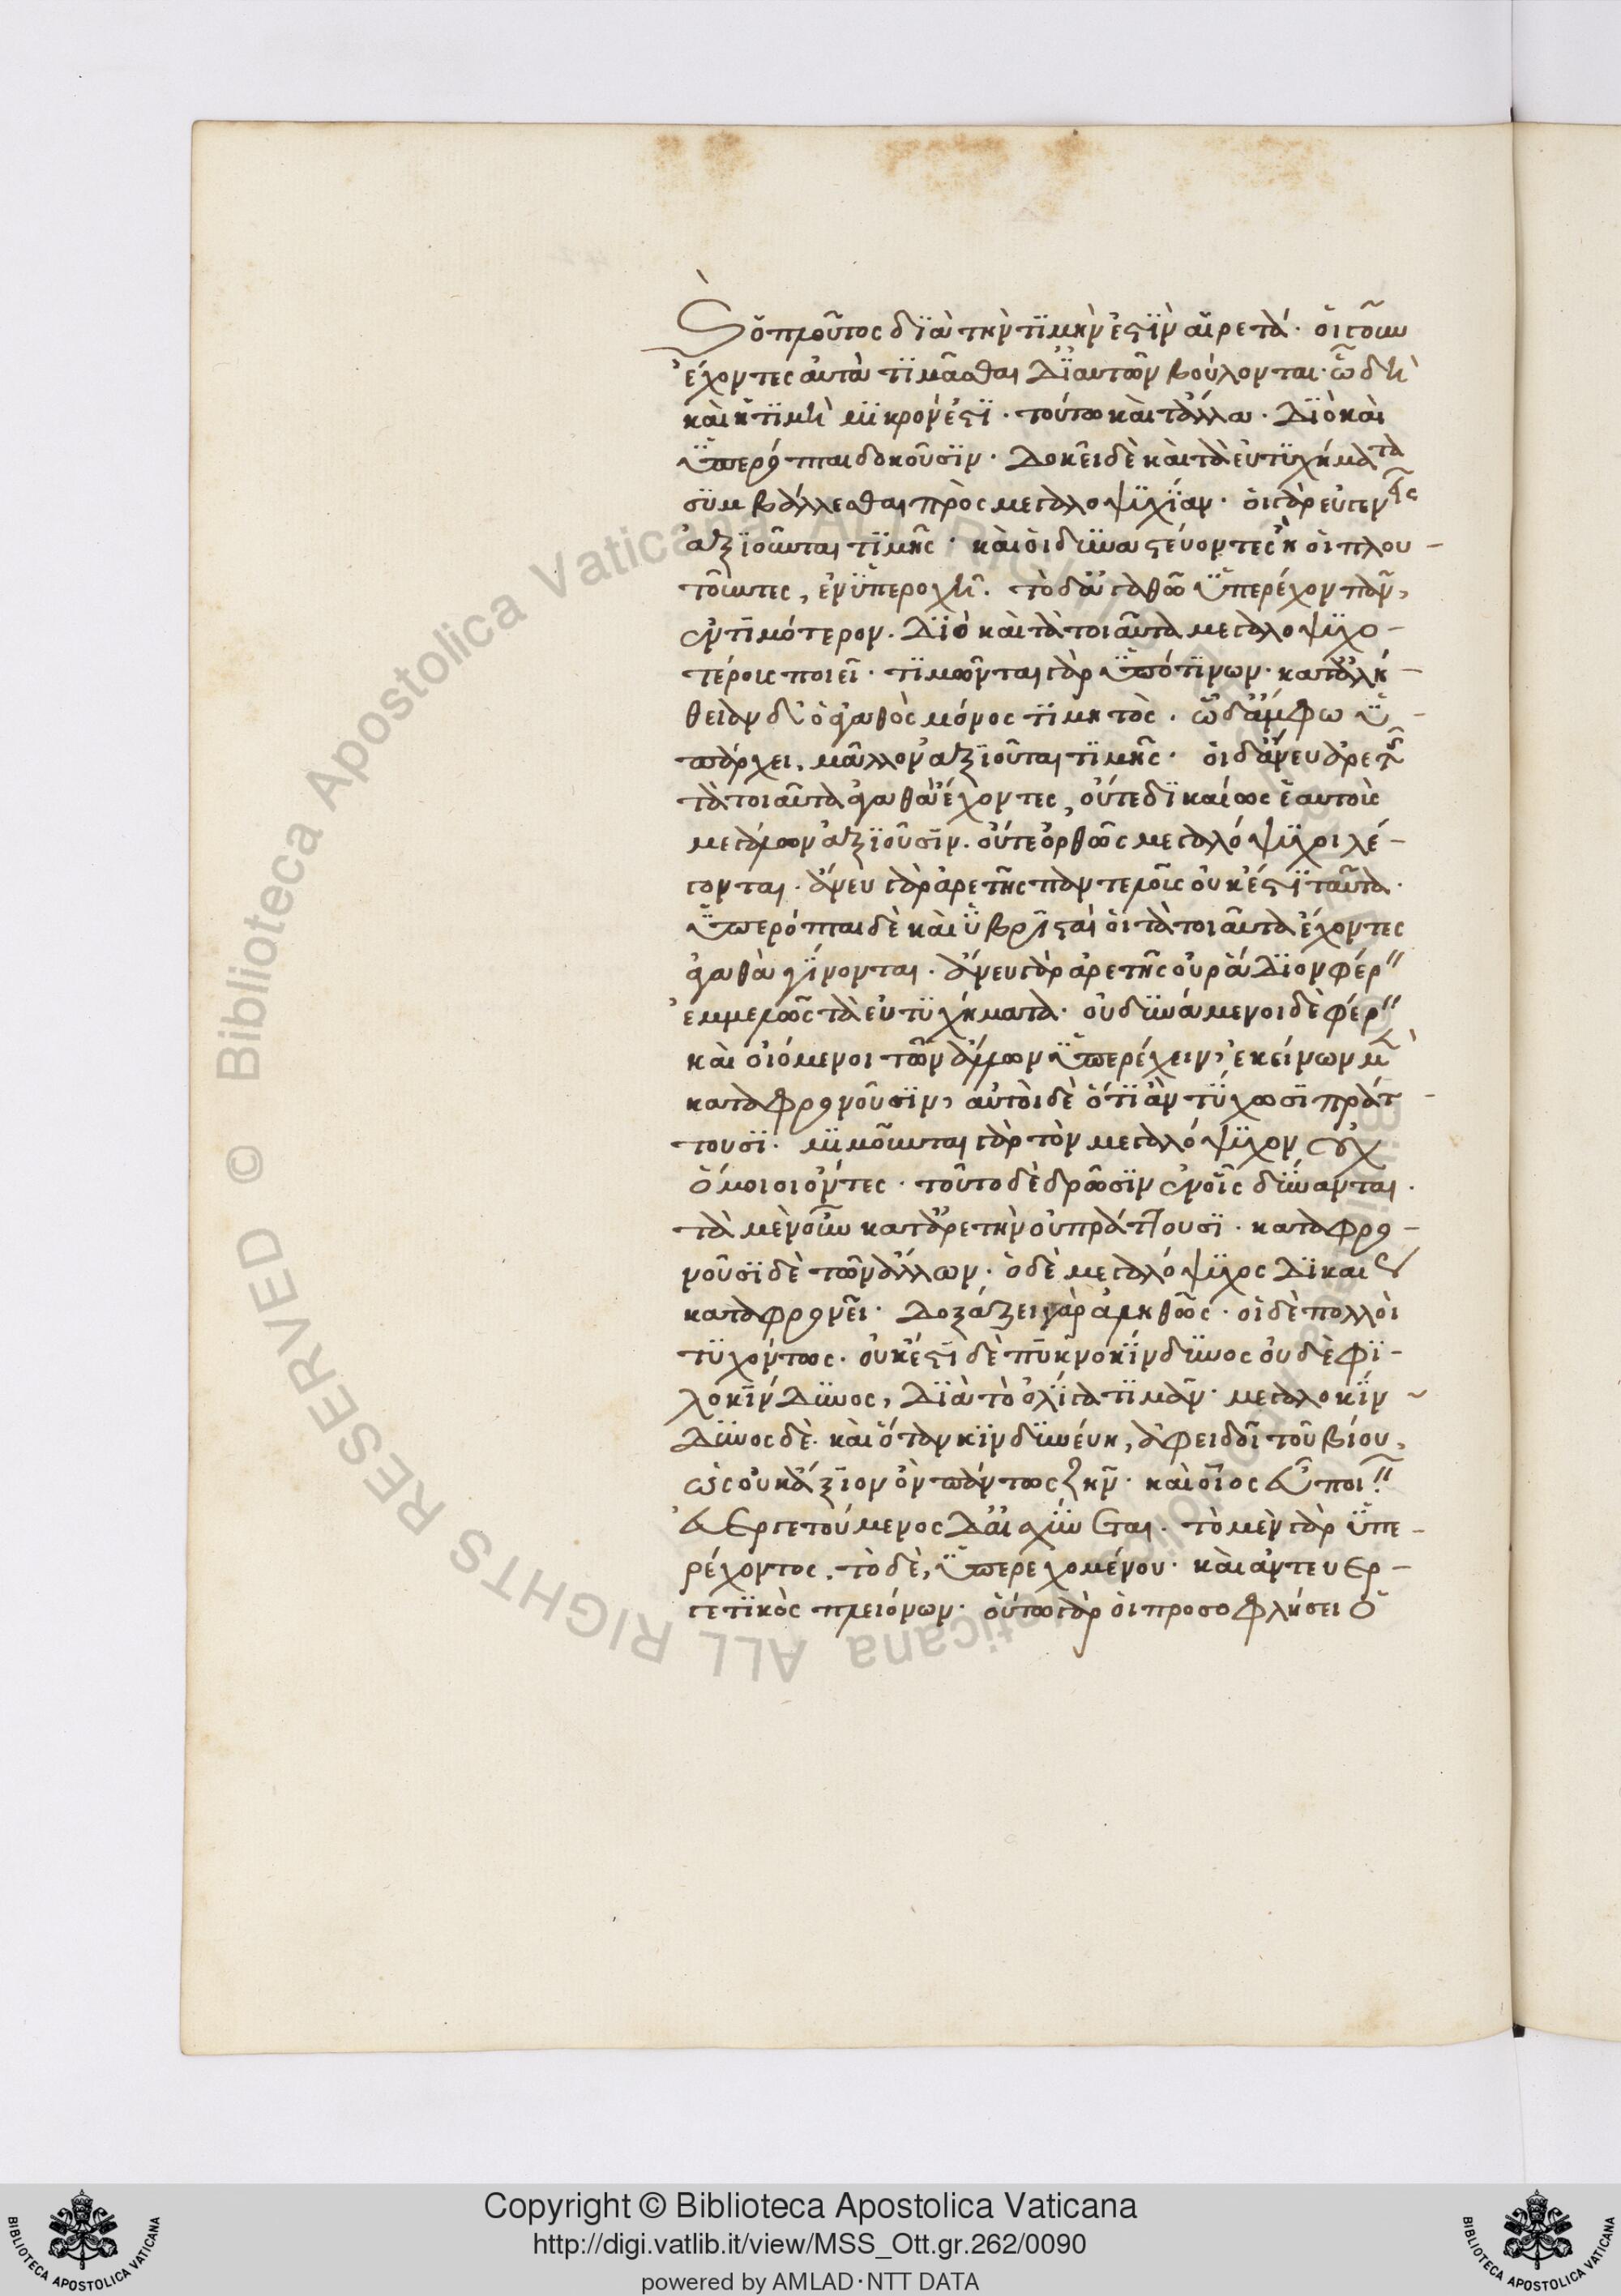 καὶ ὁ πλοῦτος διὰ τὴν τιμήν ἐστιν αἱρετά· οἱ γοῦν
ἔχοντες αὐτὰ τιμᾶσθαι δι' αὐτῶν βούλονται· ᾧ δὴ
καὶ ἡ τιμὴ μικρόν ἐστι· τούτῳ καὶ τἄλλα· διὸ καὶ
ὑπερόπται δοκοῦσιν· δοκεῖ δὲ καὶ τὰ εὐτυχήματα
συμβάλλεσθαι πρὸς μεγαλοψυχίαν· οἱ γὰρ εὐγενεῖς
ἀξιοῦνται τιμῆς· καὶ οἱ δυναστεύοντες ἢ οἱ πλου-
τοῦντες, ἐν ὑπεροχῇ· τὸ δ' ἀγαθῷ ὑπερέχον πᾶν,
ἐντιμότερον· διὸ καὶ τὰ τοιαῦτα μεγαλοψυχο-
τέρους ποιεῖ· τιμῶνται γὰρ ὑπό τινων· κατ' ἀλή-
θειαν δ' ὁ ἀγαθὸς μόνος τιμητός· ᾧ δ' ἄμφω ὑ-
πάρχει, μᾶλλον ἀξιοῦται τιμῆς· οἱ δ' ἄνευ ἀρετῆς
τὰ τοιαῦτα ἀγαθὰ ἔχοντες, οὔτε δικαίως ἑαυτοὺς
μεγάλων ἀξιοῦσιν· οὔτε ὀρθῶς μεγαλόψυχοι λέ-
γονται· ἄνευ γὰρ ἀρετῆς παντελοῦς οὐκ ἔστι ταῦτα·
ὑπερόπται δὲ καὶ ὑβρισταὶ οἱ τὰ τοιαῦτα ἔχοντες
ἀγαθὰ γίνονται· ἄνευ γὰρ ἀρετῆς οὐ ῥάδιον φέρειν
ἐμμελῶς τὰ εὐτυχήματα· οὐ δυνάμενοι δὲ φέρειν
καὶ οἰόμενοι τῶν ἄλλων ὑπερέχειν, ἐκείνων μὲν
καταφρονοῦσιν, αὐτοὶ δὲ ὅτι ἂν τύχωσι πράτ-
τουσι· μιμοῦνται γὰρ τὸν μεγαλόψυχον οὐχ
ὅμοιοι ὄντες· τοῦτο δὲ δρῶσιν ἐν οἷς δύνανται·
τὰ μὲν οὖν κατ' ἀρετὴν οὐ πράττουσι· καταφρο-
νοῦσι δὲ τῶν ἄλλων· ὁ δὲ μεγαλόψυχος δικαίως
καταφρονεῖ· δοξάζει γὰρ ἀληθῶς· οἱ δὲ πολλοὶ
τυχόντως· οὐκ ἔστι δὲ πυκνοκίνδυνος οὐδὲ φι-
λοκίνδυνος, διὰ τὸ ὀλίγα τιμᾶν· μεγαλοκίν-
δυνος δὲ· καὶ ὅταν κινδυνεύῃ, ἀφειδεῖ τοῦ βίου,
ὡς οὐκ ἄξιον ὂν πάντως ζῆν· καὶ οἷος εὖ ποιεῖν
εὐεργετούμενος δ' αἰσχύνεται· τὸ μὲν γὰρ ὑπε-
ρέχοντος· τὸ δὲ, ὑπερεχομένου· καὶ ἀντευερ-
γετικὸς πλειόνων· οὕτω γὰρ οἱ προσοφλήσει ὁ
Copyright © Biblioteca Apostolica Vaticana
http://digi.vatlib.it/view/MSS_Ott.gr.262/0090
powered by AMLAD·NTT DATA
© Biblioteca Apostolica Vaticana ALL RIGHTS RESERVED
BIBLIOTECA APOSTOLICA VATICANA
BIBLIOTECA APOSTOLICA VATICANA